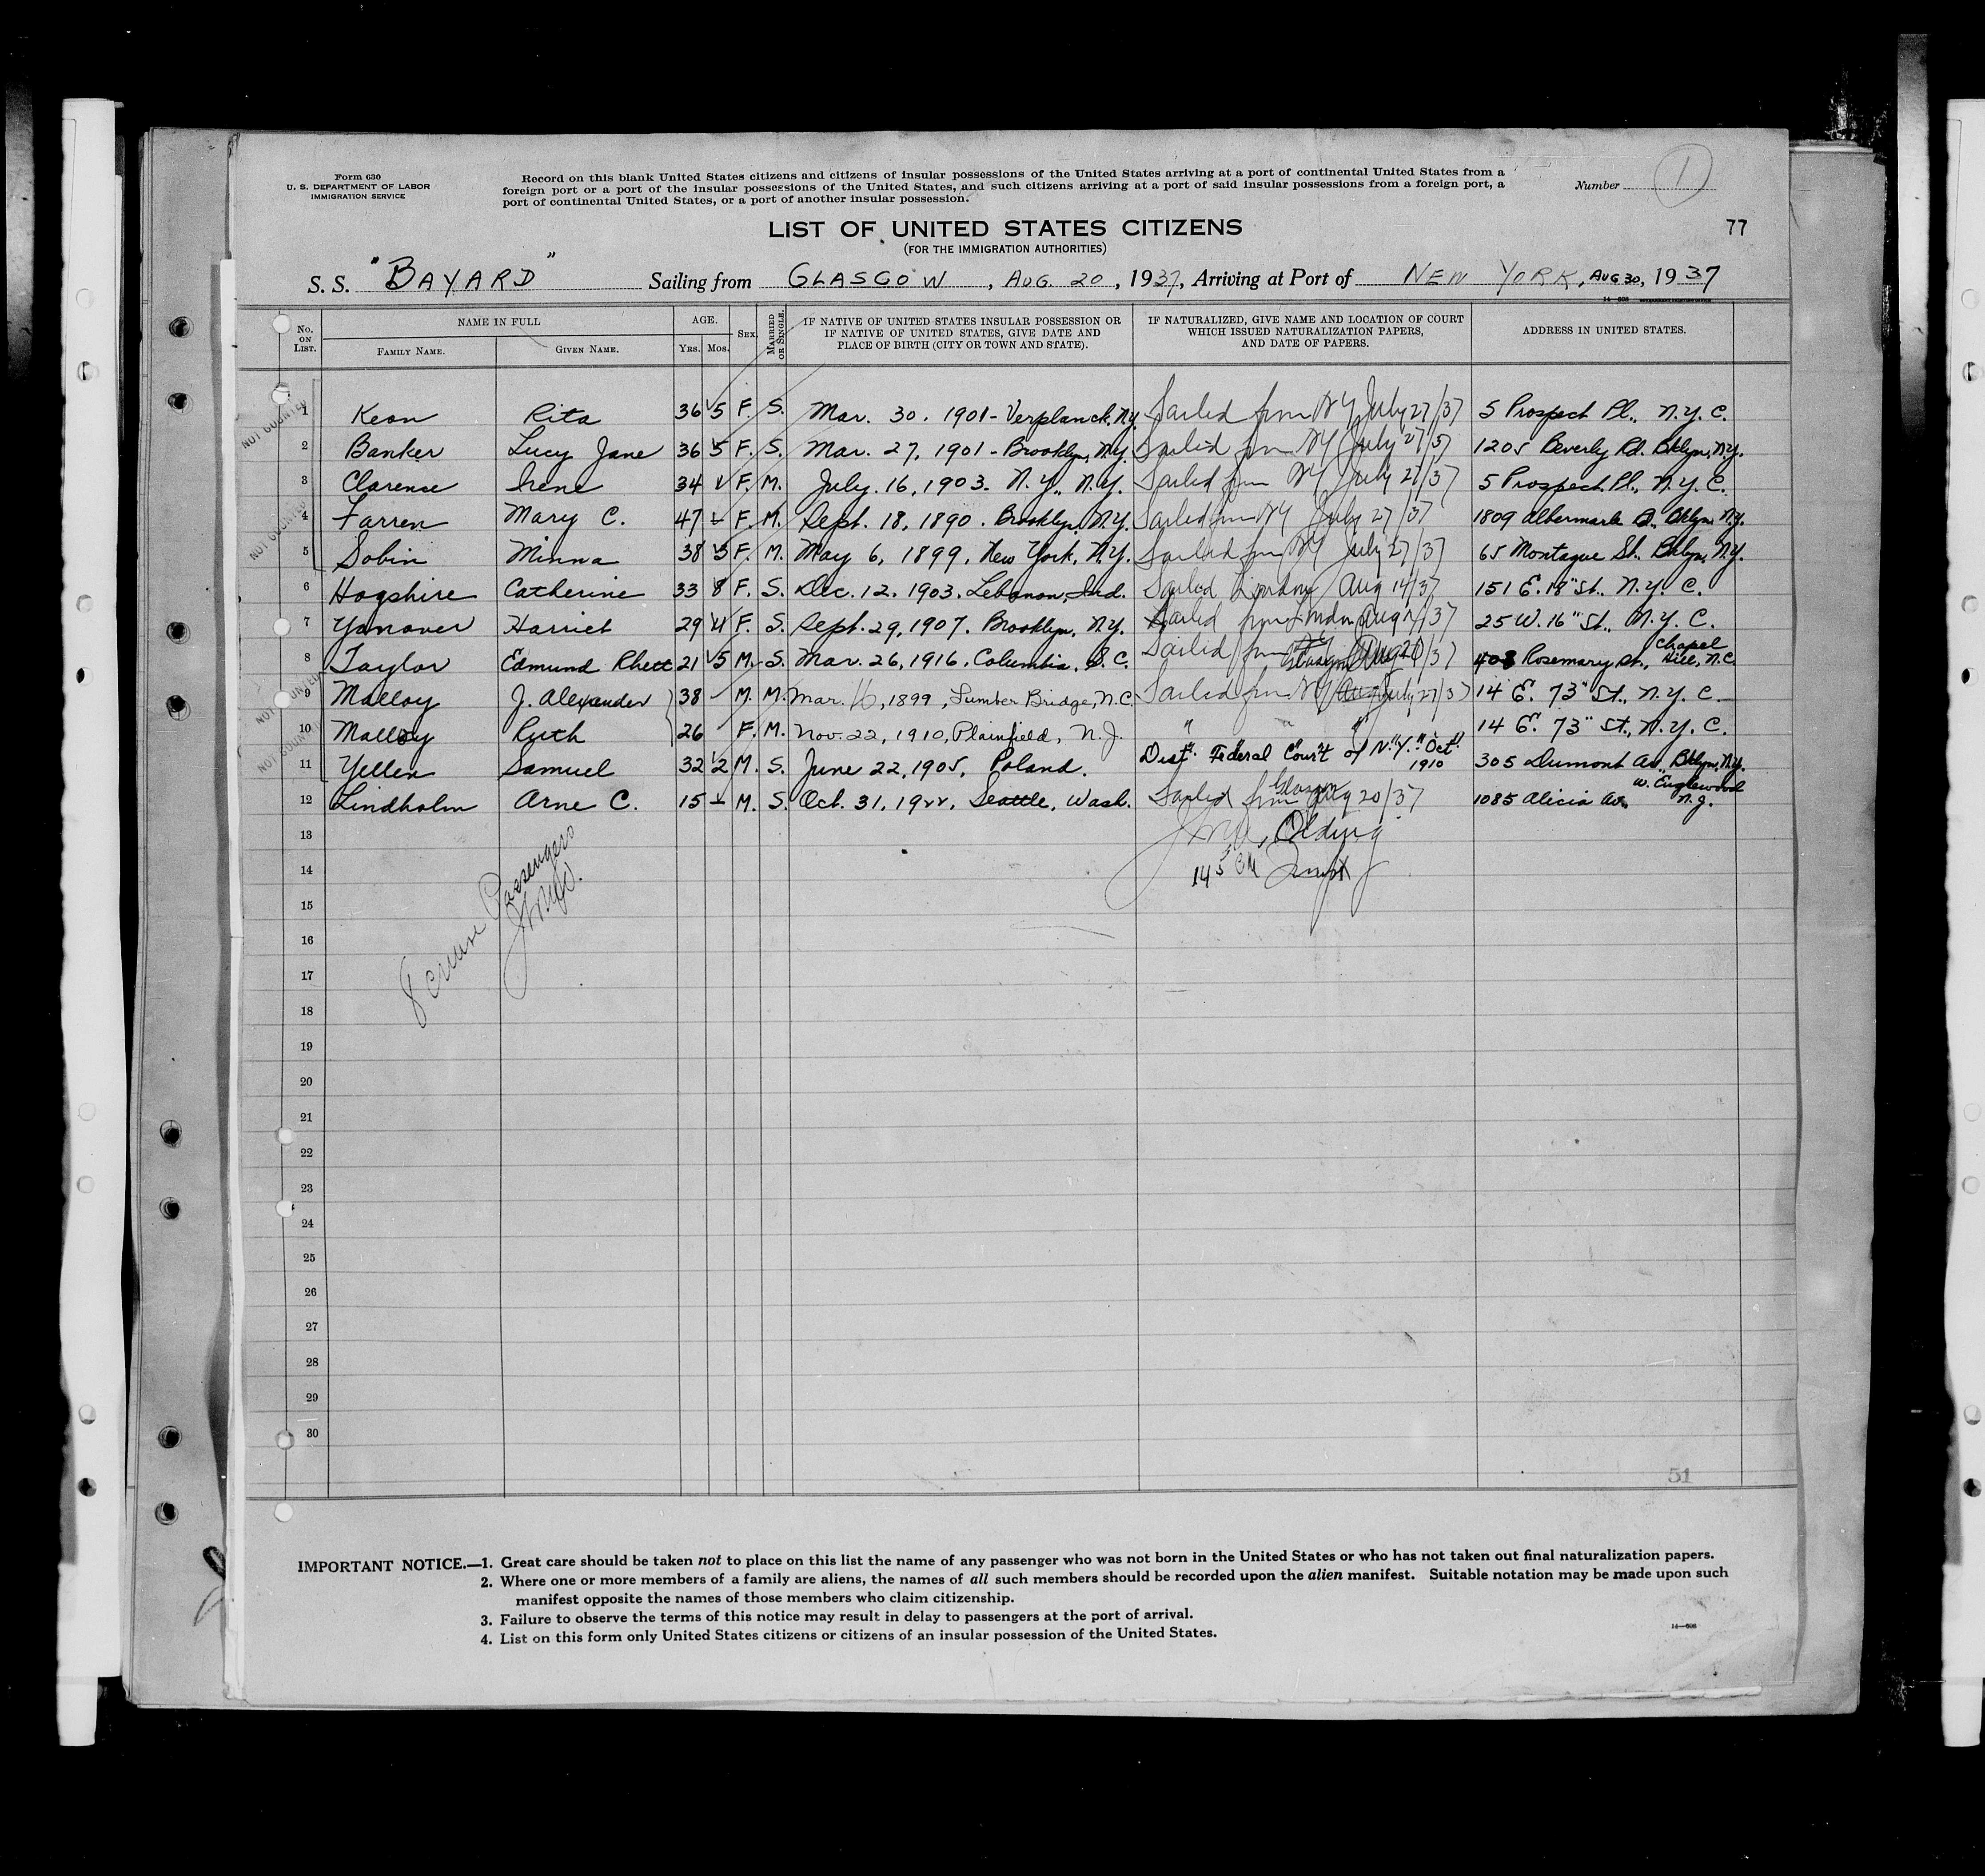 Form 630
U. S. DEPARTMENT OF LABOR
IMMIGRATION SERVICE
Record on this blank United States citizens and citizens of insular possessions of the United States arriving at a port of continental United States from a
foreign port or a port of the insular possessions of the United States, and such citizens arriving at a port of said insular possessions from a foreign port, a
port of continental United States, or a port of another insular possession.
Number 1
77
LIST OF UNITED STATES CITIZENS
(FOR THE IMMIGRATION AUTHORITIES)
S. S. "BAYARD" Sailing from GLASGOW, AUG. 20, 1937, Arriving at Port of NEW YORK, AUG 30, 1937
No. ON LIST. NAME IN FULL FAMILY NAME. GIVEN NAME. AGE. YRS. MOS. SEX. MARRIED OR SINGLE. IF NATIVE OF UNITED STATES INSULAR POSSESSION OR IF NATIVE OF UNITED STATES, GIVE DATE AND PLACE OF BIRTH (CITY OR TOWN AND STATE). IF NATURALIZED, GIVE NAME AND LOCATION OF COURT WHICH ISSUED NATURALIZATION PAPERS, AND DATE OF PAPERS. ADDRESS IN UNITED STATES.
NOT COUNTED
1 Keon Rita 36 5 F. S. Mar. 30. 1901 - Verplanck, N.Y. Sailed from NY July 27/37 5 Prospect Pl., N.Y.C.
2 Banker Lucy Jane 36 5 F. S. Mar. 27, 1901 - Brooklyn, N.Y. Sailed from NY July 27/37 1205 Beverly Rd. Bklyn, N.Y.
3 Clarence Irene 34 1 F. M. July. 16, 1903. N.Y., N.Y. Sailed from NY July 27/37 5 Prospect Pl., N.Y.C.
NOT COUNTED
4 Farren Mary C. 47 - F. M. Sept. 18, 1890. Brooklyn, N.Y. Sailed from NY July 27/37 1809 Albermarle Bklyn, N.Y.
5 Sobin Minna 38 3 F. M. May 6, 1899, New York, N.Y. Sailed from NY July 27/37 65 Montague St., Bklyn, N.Y.
6 Hogshire Catherine 33 8 F. S. Dec. 12. 1903. Lebanon, Ind. Sailed London Aug 14/37 151 E. 18" St. N.Y.C.
7 Yanover Harriet 29 11 F. S. Sept. 29, 1907. Brooklyn, N.Y. Sailed from London Aug /37 25 W. 16" St., N.Y.C.
8 Taylor Edmund Rhett 21 5 M. S. Mar. 26, 1916, Columbia, S.C. Sailed from Glasgow Aug 20/37 408 Rosemary St., Chapel Hill, N.C.
NOT COUNTED
9 Malloy J. Alexander 38 - M. M. Mar. 16, 1899, Lumber Bridge, N.C. Sailed from NY July 27/37 14 E. 73" St., N.Y.C.
10 Malloy Ruth 26 F. M. Nov. 22, 1910, Plainfield, N.J. " " " 14 E. 73" St., N.Y.C.
NOT COUNTED
11 Yellen Samuel 32 2 M. S. June 22, 1905, Poland. Dist. Federal Court of N.Y. Oct 1910 305 Dumont Av Bklyn, N.Y.
12 Lindholm Arne C. 15 - M. S. Oct. 31, 1922, Seattle, Wash. Sailed from Glasgow Aug 20/37 1085 Alicia Av. W. Englewood N.J.
13
14
15
16
17
18
19
20
21
22
23
24
25
26
27
28
29
30
8 cruise Passengers
51
IMPORTANT NOTICE.—1. Great care should be taken not to place on this list the name of any passenger who was not born in the United States or who has not taken out final naturalization papers.
2. Where one or more members of a family are aliens, the names of all such members should be recorded upon the alien manifest. Suitable notation may be made upon such
manifest opposite the names of those members who claim citizenship.
3. Failure to observe the terms of this notice may result in delay to passengers at the port of arrival.
4. List on this form only United States citizens or citizens of an insular possession of the United States.